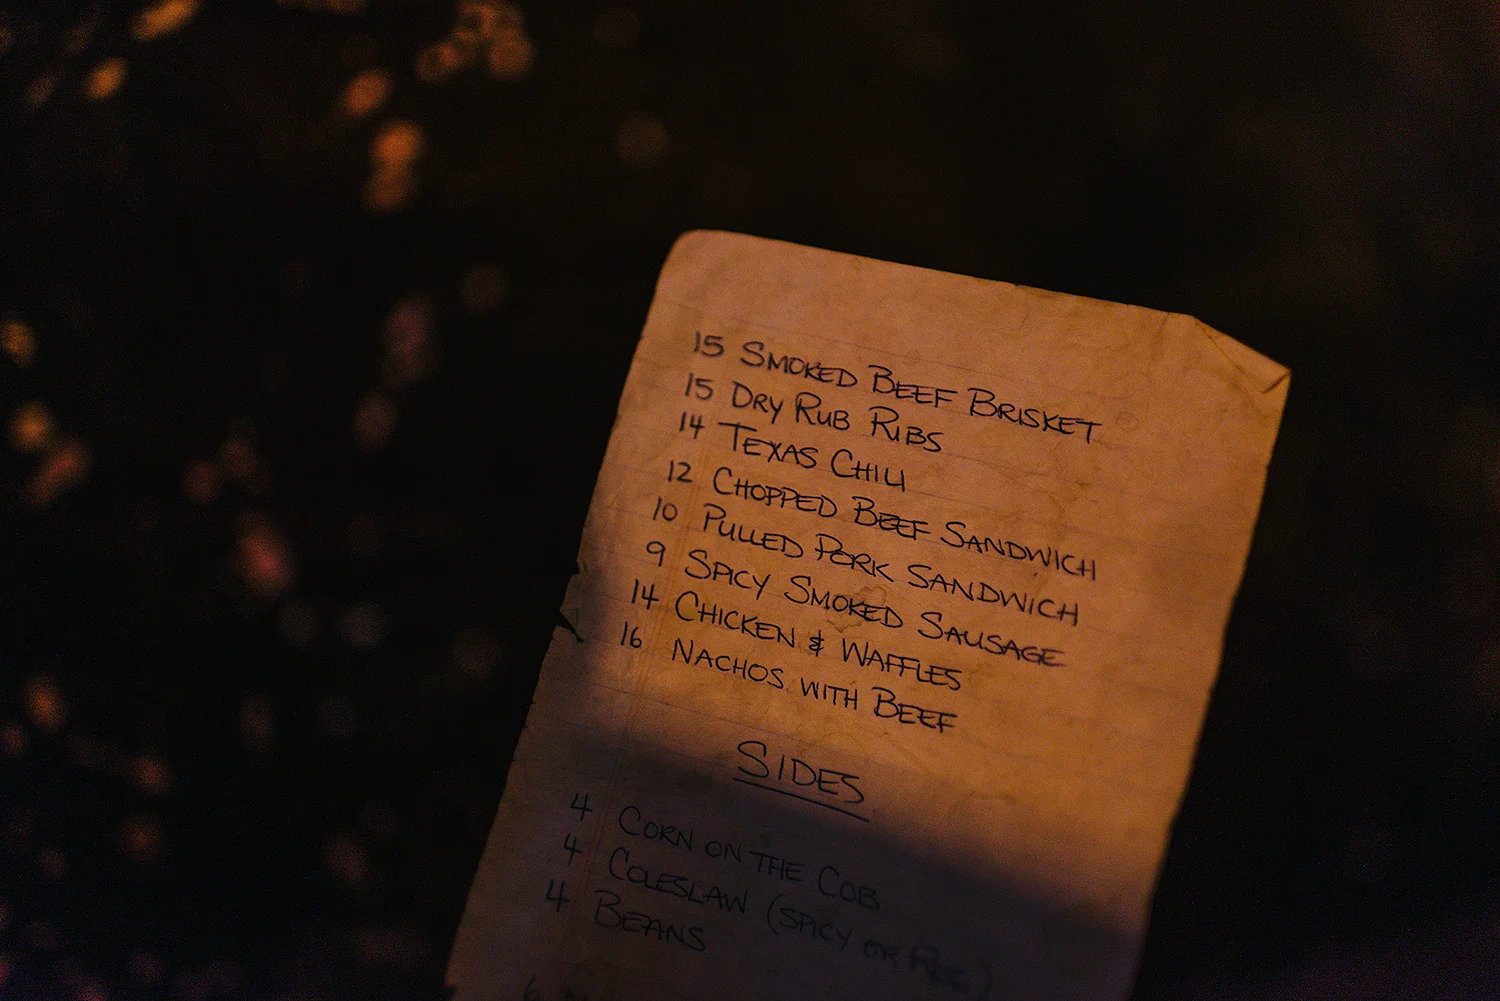 15 SMOKED BEEF BRISKET
15 DRY RUB RIBS
14 TEXAS CHILI
12 CHOPPED BEEF SANDWICH
10 PULLED PORK SANDWICH
9 SPICY SMOKED SAUSAGE
14 CHICKEN & WAFFLES
16 NACHOS WITH BEEF
SIDES
4 CORN ON THE COB
4 COLESLAW (SPICY OR
4 BEANS
6